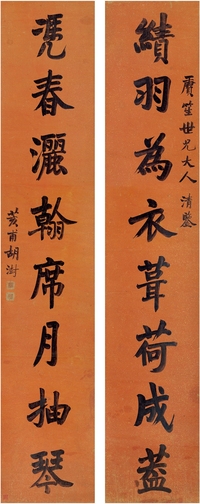 績羽為衣葺荷成蓋
磨笙世兄大人清鑒
凭春灑翰席月抽琴
荄甫胡澍